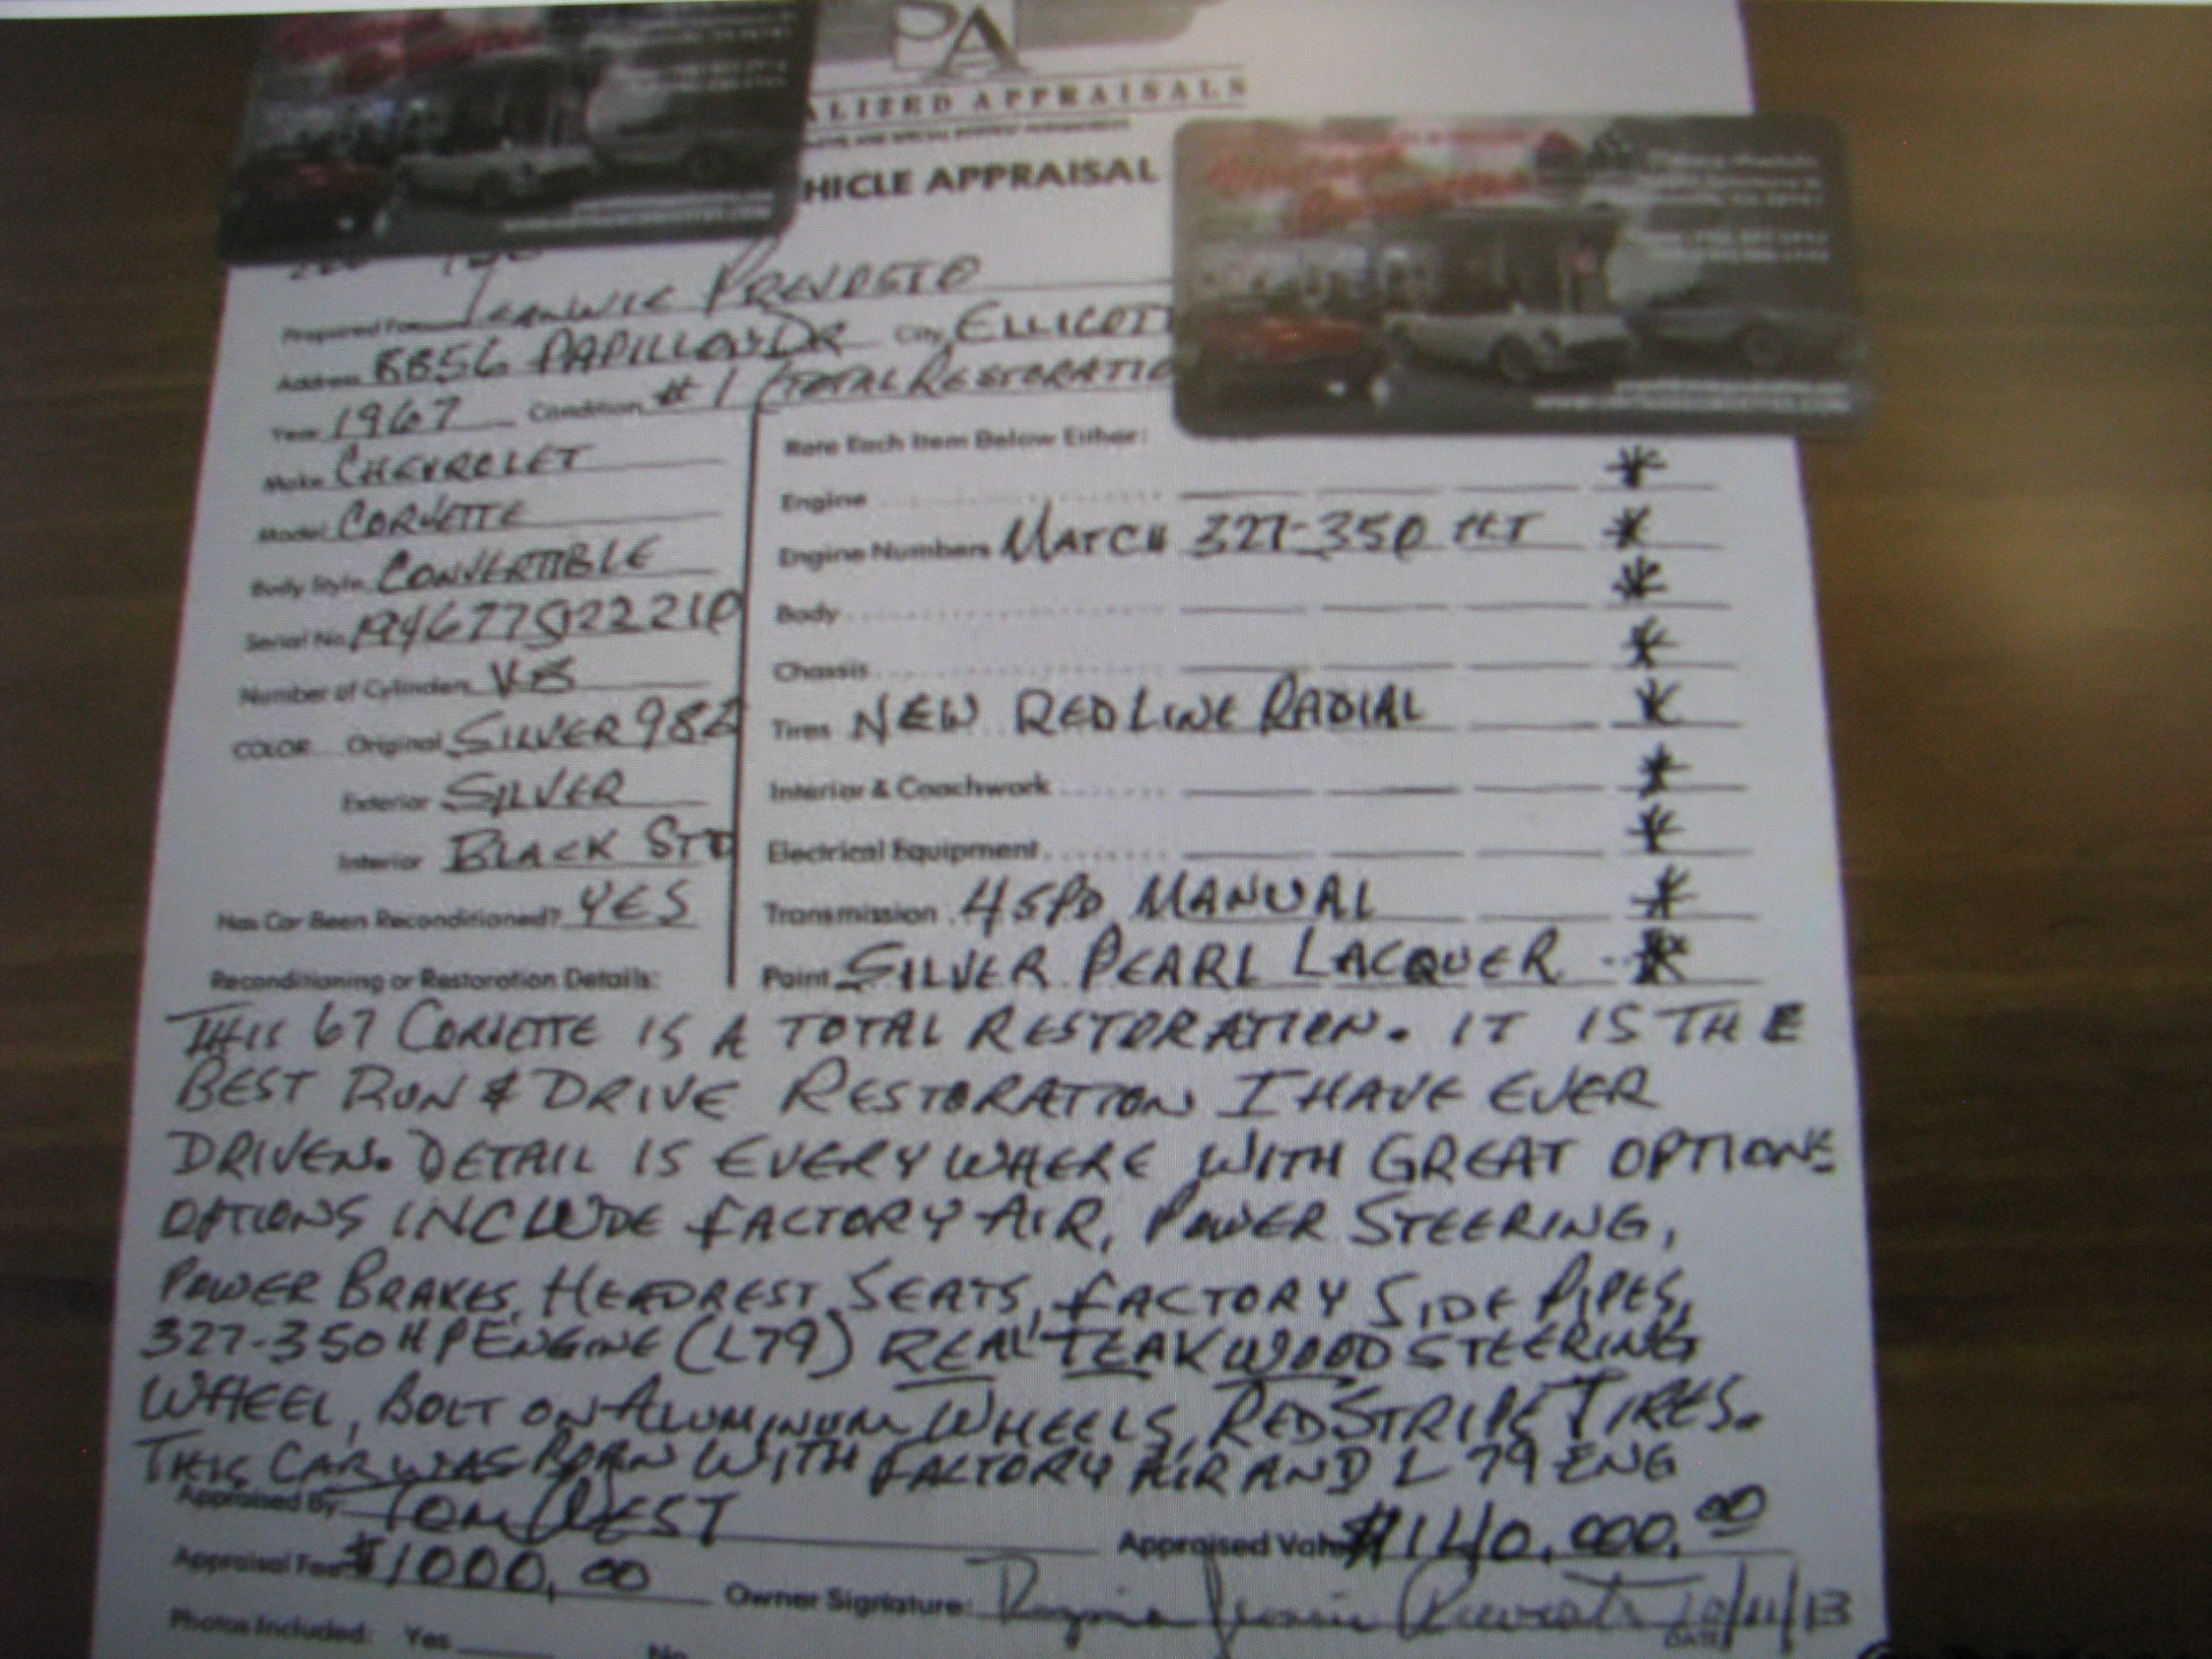 PA
ALIZED APPRAISALS
HICLE APPRAISAL
Prepared For
Address 8856 PAPILLON DR City ELLICOTT
Year 1967 Condition #1 (TOTAL RESTORATIO
Make CHEVROLET
Model CORVETTE
Body Style CONVERTIBLE
Serial No. 194677S122210
Number of Cylinders V-8
COLOR Original SILVER 986
Exterior SILVER
Interior BLACK STD
Has Car Been Reconditioned? YES
Reconditioning or Restoration Details:
Rate Each Item Below Either:
Engine
Engine Numbers MATCH 327-350 HT
Body
Chassis
Tires NEW REDLINE RADIAL
Interior & Coachwork
Electrical Equipment
Transmission 4 SPD MANUAL
Paint SILVER PEARL LACQUER
THIS 67 CORVETTE IS A TOTAL RESTORATION. IT IS THE
BEST RUN & DRIVE RESTORATION I HAVE EVER
DRIVEN. DETAIL IS EVERYWHERE WITH GREAT OPTIONS
OPTIONS INCLUDE FACTORY AIR, POWER STEERING,
POWER BRAKES, HEADREST SEATS, FACTORY SIDE PIPES,
327-350 HP ENGINE (L79) REAL TEAKWOOD STEERING
WHEEL, BOLT ON ALUMINUM WHEELS, REDSTRIPE TIRES.
THIS CAR WAS BORN WITH FACTORY AIR AND L79 ENG
Appraised By: TOM WEST Appraised Value $140,000.00
Appraisal Fee $1000.00 Owner Signature: 10/11/13
DATE
Photos Included: Yes No